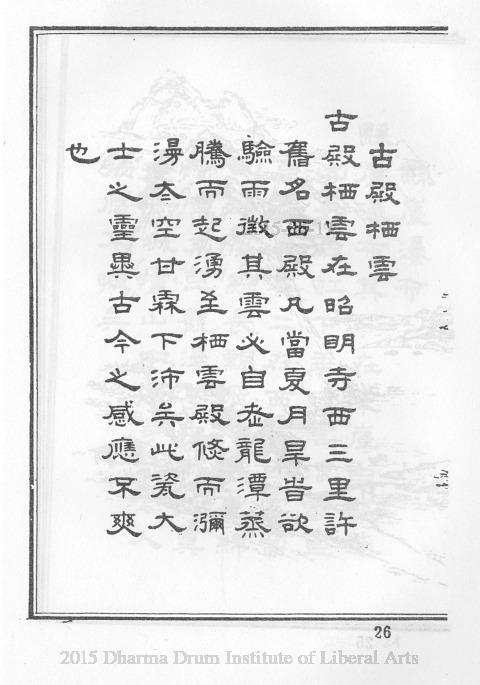 古殿栖雲
古殿栖雲在昭明寺西三里許
舊名西殿凡當夏月旱旹欲
驗雨徵其雲必自老龍潭蒸
騰而起湧至栖雲殿倏而瀰
漫太空甘霖下沛矣此瓷大
士之靈異古今之感應不爽
也
26
2015 Dharma Drum Institute of Liberal Arts